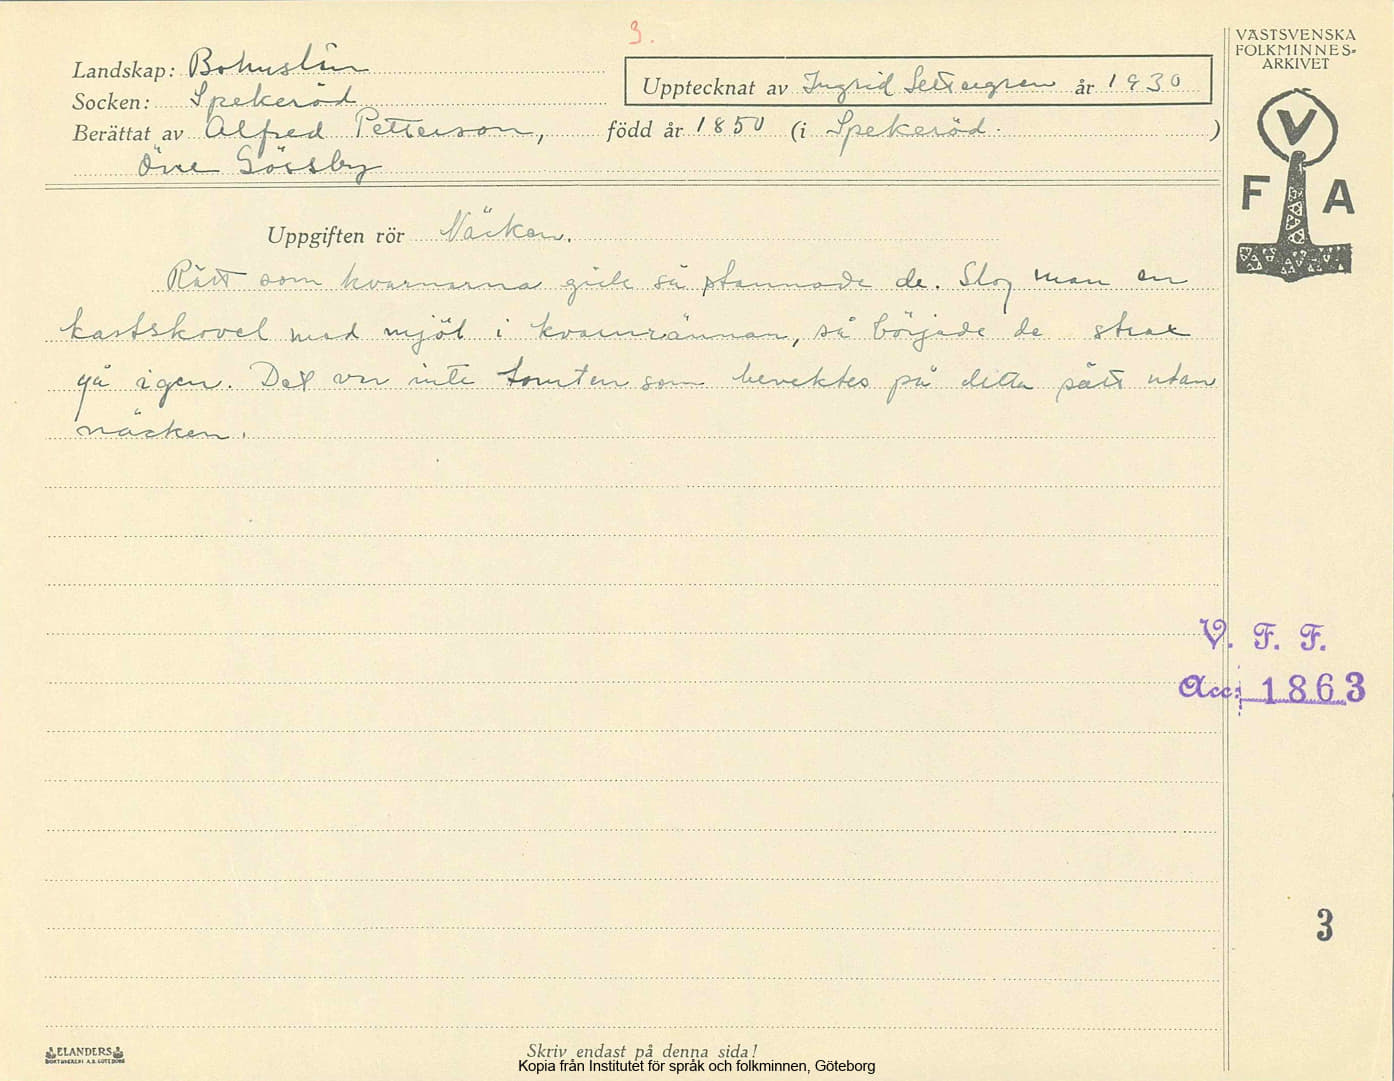 3.
VÄSTSVENSKA
FOLKMINNES-
ARKIVET
Landskap: Bohuslän
Upptecknat av Ingrid Settergren år 1930
Socken: Spekeröd
Berättat av Alfred Petterson, född år 1850 (i Spekeröd. )
Övre Gössby
V
F A
Uppgiften rör Näcken.
Rätt som kvarnarna gick så stannade de. Slog man en
kastskovel med mjöl i kvarnrännan, så började de strax
gå igen. Det var inte tomten som bevektes på detta sätt utan
näcken.
V. F. F.
Acc: 1863
3
ELANDERS
BOKTRYCKERI A.B. GÖTEBORG
Skriv endast på denna sida!
Kopia från Institutet för språk och folkminnen, Göteborg